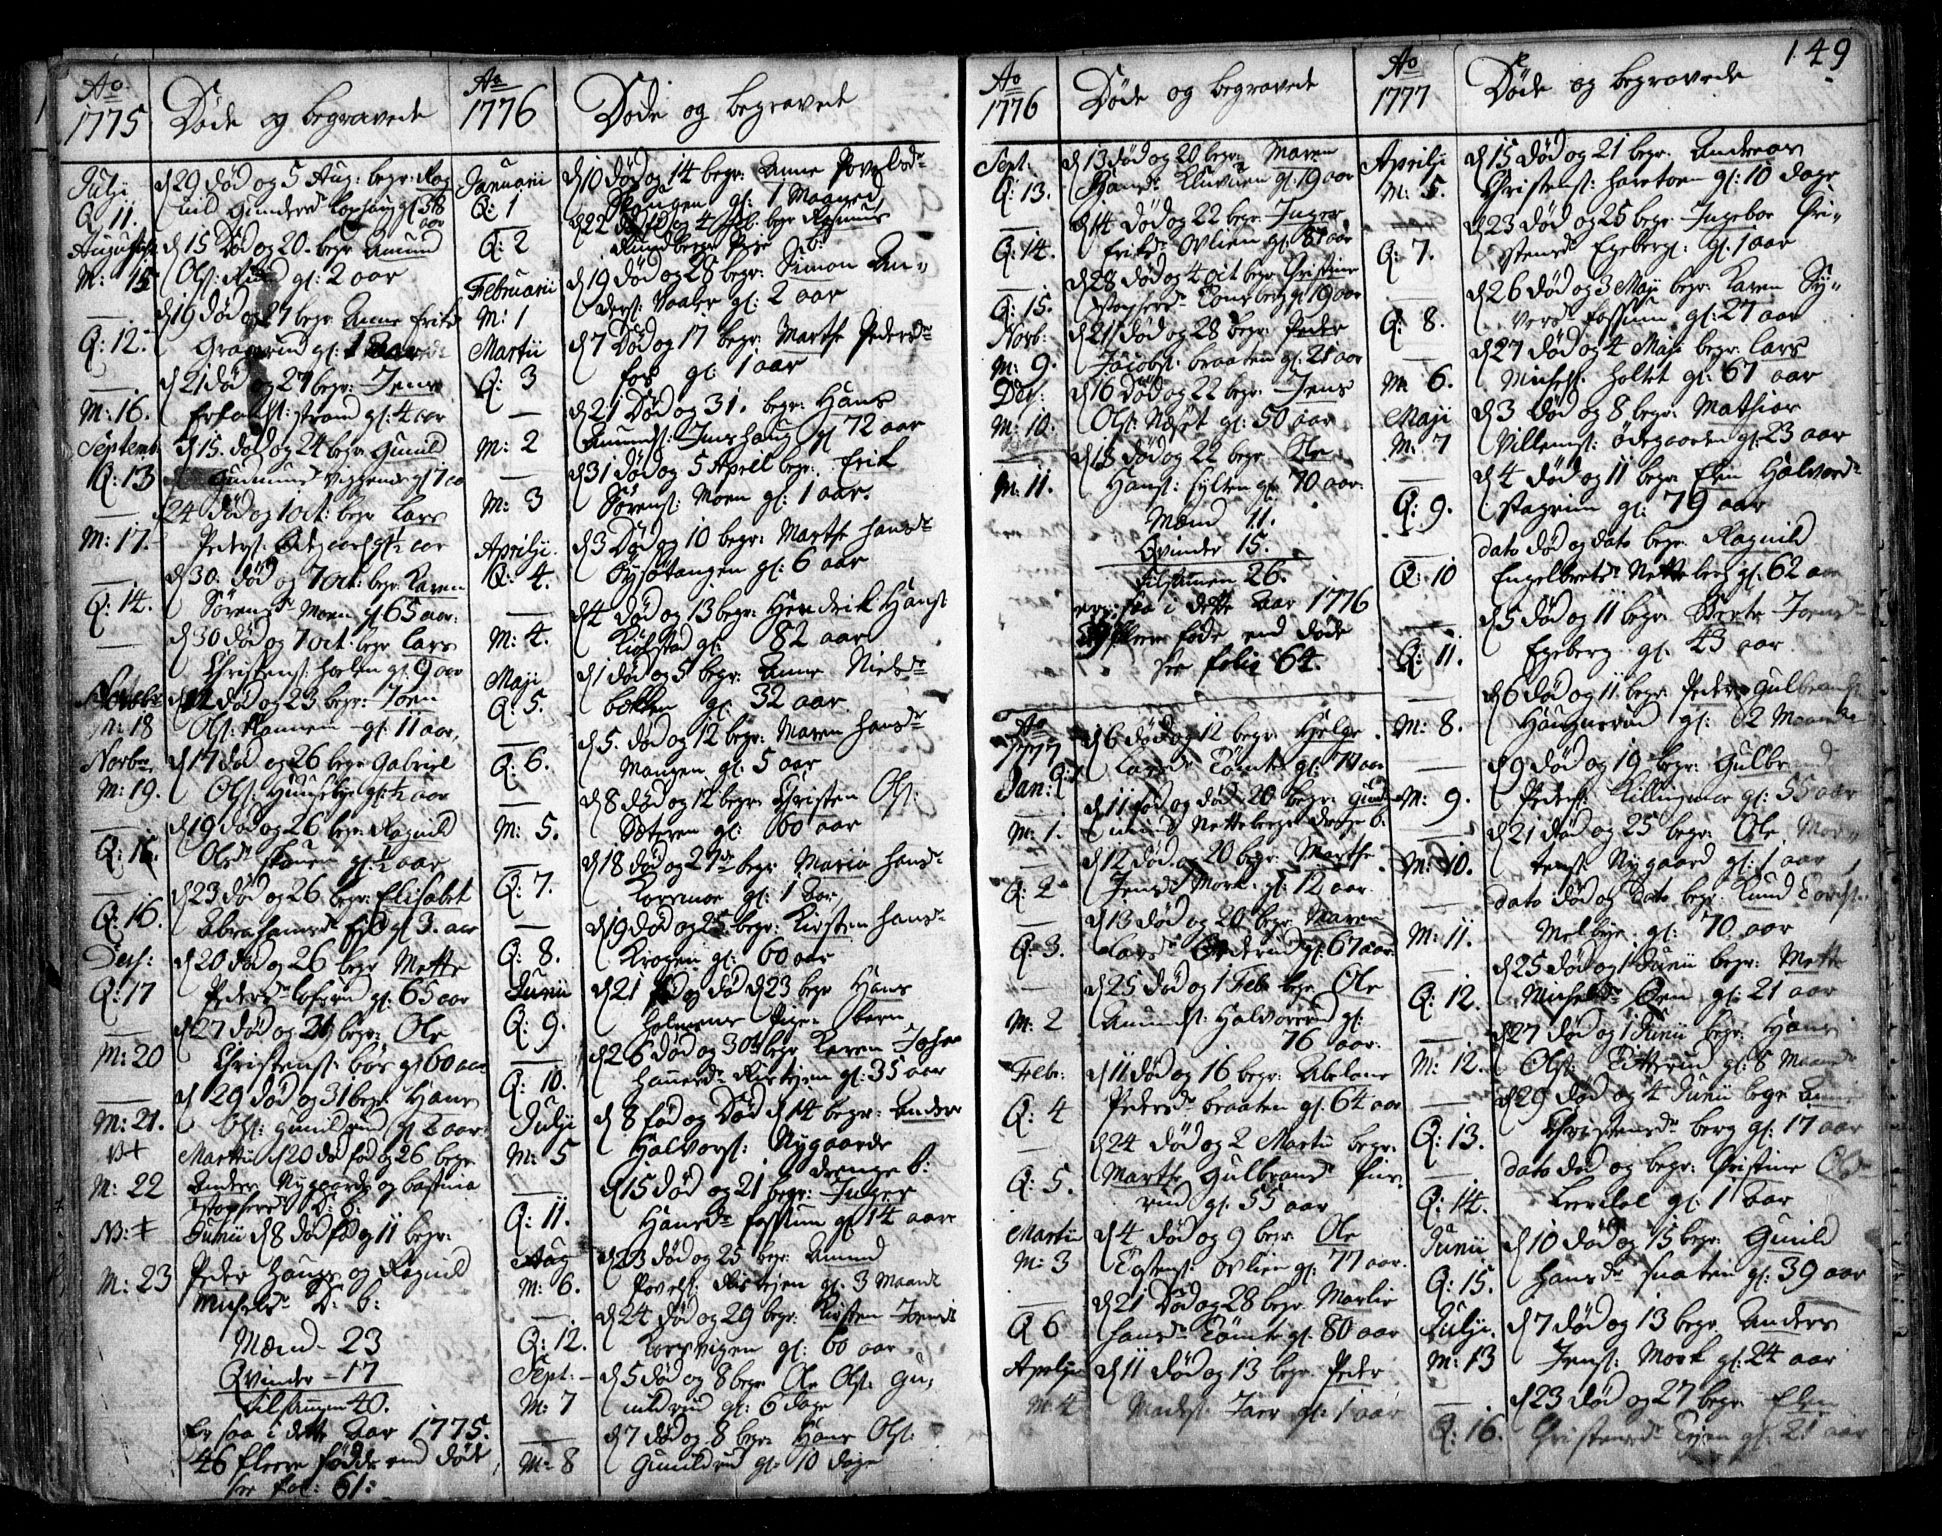 Ao 1775
Døde og begravede
Julii
Q: 11.
d 29 død og 5 Aug: begr: Rag
nild Gunders gl 38
aar
Augusti
M: 15
d 15 Død og 20. begr Amund
Ols: Rund gl: 2 aar
Q: 12.
d 19 død og 27 begr Anne Eriks
gl: 1
M: 16.
d 21 død og 27 begr: Jens
Erlands: strand gl: 4 aar
Septemb:
Q: 13
d 15. død og 24 begr. Gunild
Gudmunds gl 7 aa
M: 17.
24 død og 1 oct: begr Lars
Peders:
Q: 14.
d 30. død og 7 oct: begr Karen
Sørensd Moen gl 65 aar.
d 30 død og 7 oct: begr Lars
Christens: holten gl: 9 aar
M: 18
død og 23 begr: Joen
Ols: gl: 11 aar,
Norbr
M: 19.
d 17 død og 26 begr Gabriel
Ols: Huusebye gl: ½ aar
Q: 15.
d 19 død og 26 begr: Ragnild
Olsd skouen gl: ½ aar
Q: 16.
d 23 død og 26. begr: Elisabet
Abrahamsd gl 3. aar
Desc:
Q: 17
d 20 død og 26 begr Mette
Pedersd gl: 65 aar
M: 20
d 27 død og begr: Ole
Christens: bør gl 60 aar
M: 21.
d 29 død og 31 begr Hans
Ols: gunildrud gl 2 aar:
M: 22
Martii d 20 død fød og 26 begr
Anders Nygaards og bastina
D: b:
NB: +
Junii d 8 død fød og 11 begr:
M: 23
Peder Hauge og Ragnild
Michelsd D: b:
Mænd - 23
Qvinder - 17
tilsammen 40.
Er saa i dette Aar 1775.
46 fleere fødde end døde
see fol: 61:
Ao 1776
Døde og begravede
Januarii
Q: 1
d 10 død og 14 begr: Anne Povelsd
gl: 1
Q: 2
d 22 død og 4 feb. begr
Februarii
M: 1
d 19 død og 28 begr: Simon An„
ders: Vaaler gl: 2 aar
Martii
Q: 3
d 7 Død og 17 begr: Marthe Pedersd
fos gl: 1 aar
M: 2
d 21 Død og 31. begr: Hans
Amunds: Imshaug gl 72 aar
M: 3
d 31 død og 5 Apell begr: Erik
Sørens: Moen gl: 1 aar.
Aprilii.
Q: 4.
d 3 Død og 10 begr: Marthe Hansd
Sysøtangen gl: 6 aar
M: 4.
d 4 død og 13 begr: Hendrik Hans:
Kiølstad gl: 82 aar
Maji
Q: 5.
d 1 død og 5 begr: Anne Nielsd
bakken gl: 32 aar
Q: 6.
d 5. død og 12 begr: Maren Hansd
Mangen gl: 5 aar
M: 5.
d 8 død og 12 begr: Christen Ols:
Sæteren gl: 60 aar
Q: 7.
d 18 død og 27 begr Maria Hansd
Korsmoe gl: 1 Aar
Q: 8.
d 19 død og 25 begr: Kirsten Hansd
Krogen gl: 60 aar
Junii
Q: 9.
d 21 fød og død d 23 begr Hans
Holmens Pige barn
Q: 10.
d 26 død og 30te begr Karen Joha
hannesd gl: 35 aar
Julii
M: 5
d 8 fød og Død d 14 begr: Anders
Halvors: Nygaards
drenge b:
Q: 11.
d 15 død og 21 begr: Inger
Hansd fossum gl 14 aar
Aug
M: 6.
d 23 død og 25 begr Amund
Povels: gl: 3 Maaned
Q: 12.
d 24 død og 29 begr: Kirsten Joensd
Korsvigen gl: 60 aar
Sept:
M: 7
d 5 død og 8 begr Ole Ols: Gu„
nildrud gl: 6 dage
M: 8
d 7 død og 8 begr Hans Ols:
Gunildrud gl: 10 dage
149
Ao 1776
Døde og begravede
Sept:
Q: 13.
d 13 død og 20 begr: Maren
Hansd gl 19 aar
Q: 14.
d 14 død og 22 begr Inger
Eriksd Ovlien gl 87 aar
Q: 15.
d 28 død og 4 oct begr Christine
gl 19 aar
Norb:
M: 9.
d 21 død og 28 begr: Peder
Jacobs: braaten gl: 21 aar
Des:
M: 10.
d 16 Død og 22 begr: Jens
Ols: Næset gl: 50 aar
M: 11.
d 18 død og 22 begr Ole
Hans: gl: 70 aar.
Mænd 11.
Qvinder 15.
tilsammen 26.
er saa i dette Aar 1776
fleere fødde end døde
see folio 64.
Ao 1777
Jan: Q: 1
d 6 død og 12 begr: Helge
Larsd Tomte gl: 74 aar
M: 1.
d 11 fød og død 20 begr: Gud
mund Netteberg drenge b.
Q: 2
d 12 død og 20 begr: Marthe
Jensd Mork gl: 12 aar.
Q: 3.
d 13 død og 20 begr: Maren
Larsd gl: 67 aar
M: 2
d 25 død og 1 Febr begr Ole
Amunds: Halvorsrud gl:
76 aar.
Febr:
Q: 4
d 11 død og 16 begr: Abelone
Pedersd braaten gl. 64 aar
Q: 5.
d 24 død og 2 Martii begr:
Marthe Gulbrandsd
rud gl: 55 aar
Martii
M: 3
d 4 død og 9 begr Ole
Estens: ovlien gl: 77 aar.
Q 6
d 21 Død og 28 begr. Marlie
Hansd Tomte gl: 80 aar
Aprilii
M: 4
d 11 død og 13 begr Peder
Mads: Jaer gl: 1 aar
Ao 1777
Døde og begravede
Aprilii
M: 5.
d 15 død og 21 begr: Andreas
Christens: haretoen gl: 10 dage
Q: 7.
d 23 død og 25 begr. Ingebor Chri„
stensd Egeberg: gl: 1 aar
Q: 8.
d 26 død og 3 Maji begr: Karen Sy„
versd fossum gl: 27 aar
M: 6.
d 27 død og 4 Maji begr: Lars
Michels: holtet gl: 67 aar
Maji
M: 7
d 3 død og 8 begr: Mathias
Villums: ødegaarden gl: 23 aar
Q: 9.
d 4 død og 11 begr: Elen Halvorsd
stagrim gl: 79 aar
Q: 10
dato død og dato begr: Ragnild
Engelbretsd Netteberg gl: 62 aar
Q: 11.
d 5 død og 11 begr: Berte Joensd
Egeberg gl: 43 aar
M: 8.
d 6 død og 11 begr: Peder Gulbrands:
Haugnesrud gl: 2 Maaneder
M: 9.
d 9 død og 19 begr: Gulbrand
Peders: Killingmoe gl: 55 aar
M: 10.
d 21 død og 25 begr: Ole Mor„
tens: Nygaard gl: 1 aar
M: 11.
dato død og dato begr: Knud Torst:
Melbye gl: 70 aar
Q: 12.
d 25 død og 1 Junii begr: Mette
Michelsd Øen gl: 21 aar
M: 12.
d 27 død og 1 Junii begr: Hans
Ols: gl: 8 Maaned
Q: 13.
d 29 død og 4 Junii begr
Christensd berg gl: 17 aar
Q: 14.
dato død og begr: Christine Olsd
Leerdal gl: 1 Aar
Junii
Q: 15.
d 10 død og 15 begr: Gunild
Hansd snaten gl: 39 aar
Julii.
M: 13
d 7 død og 13 begr. Anders
Jens: Mork gl: 24 aar
Q: 16.
d 23 død og 27 begr Elen
Christensd gl: 21 aar